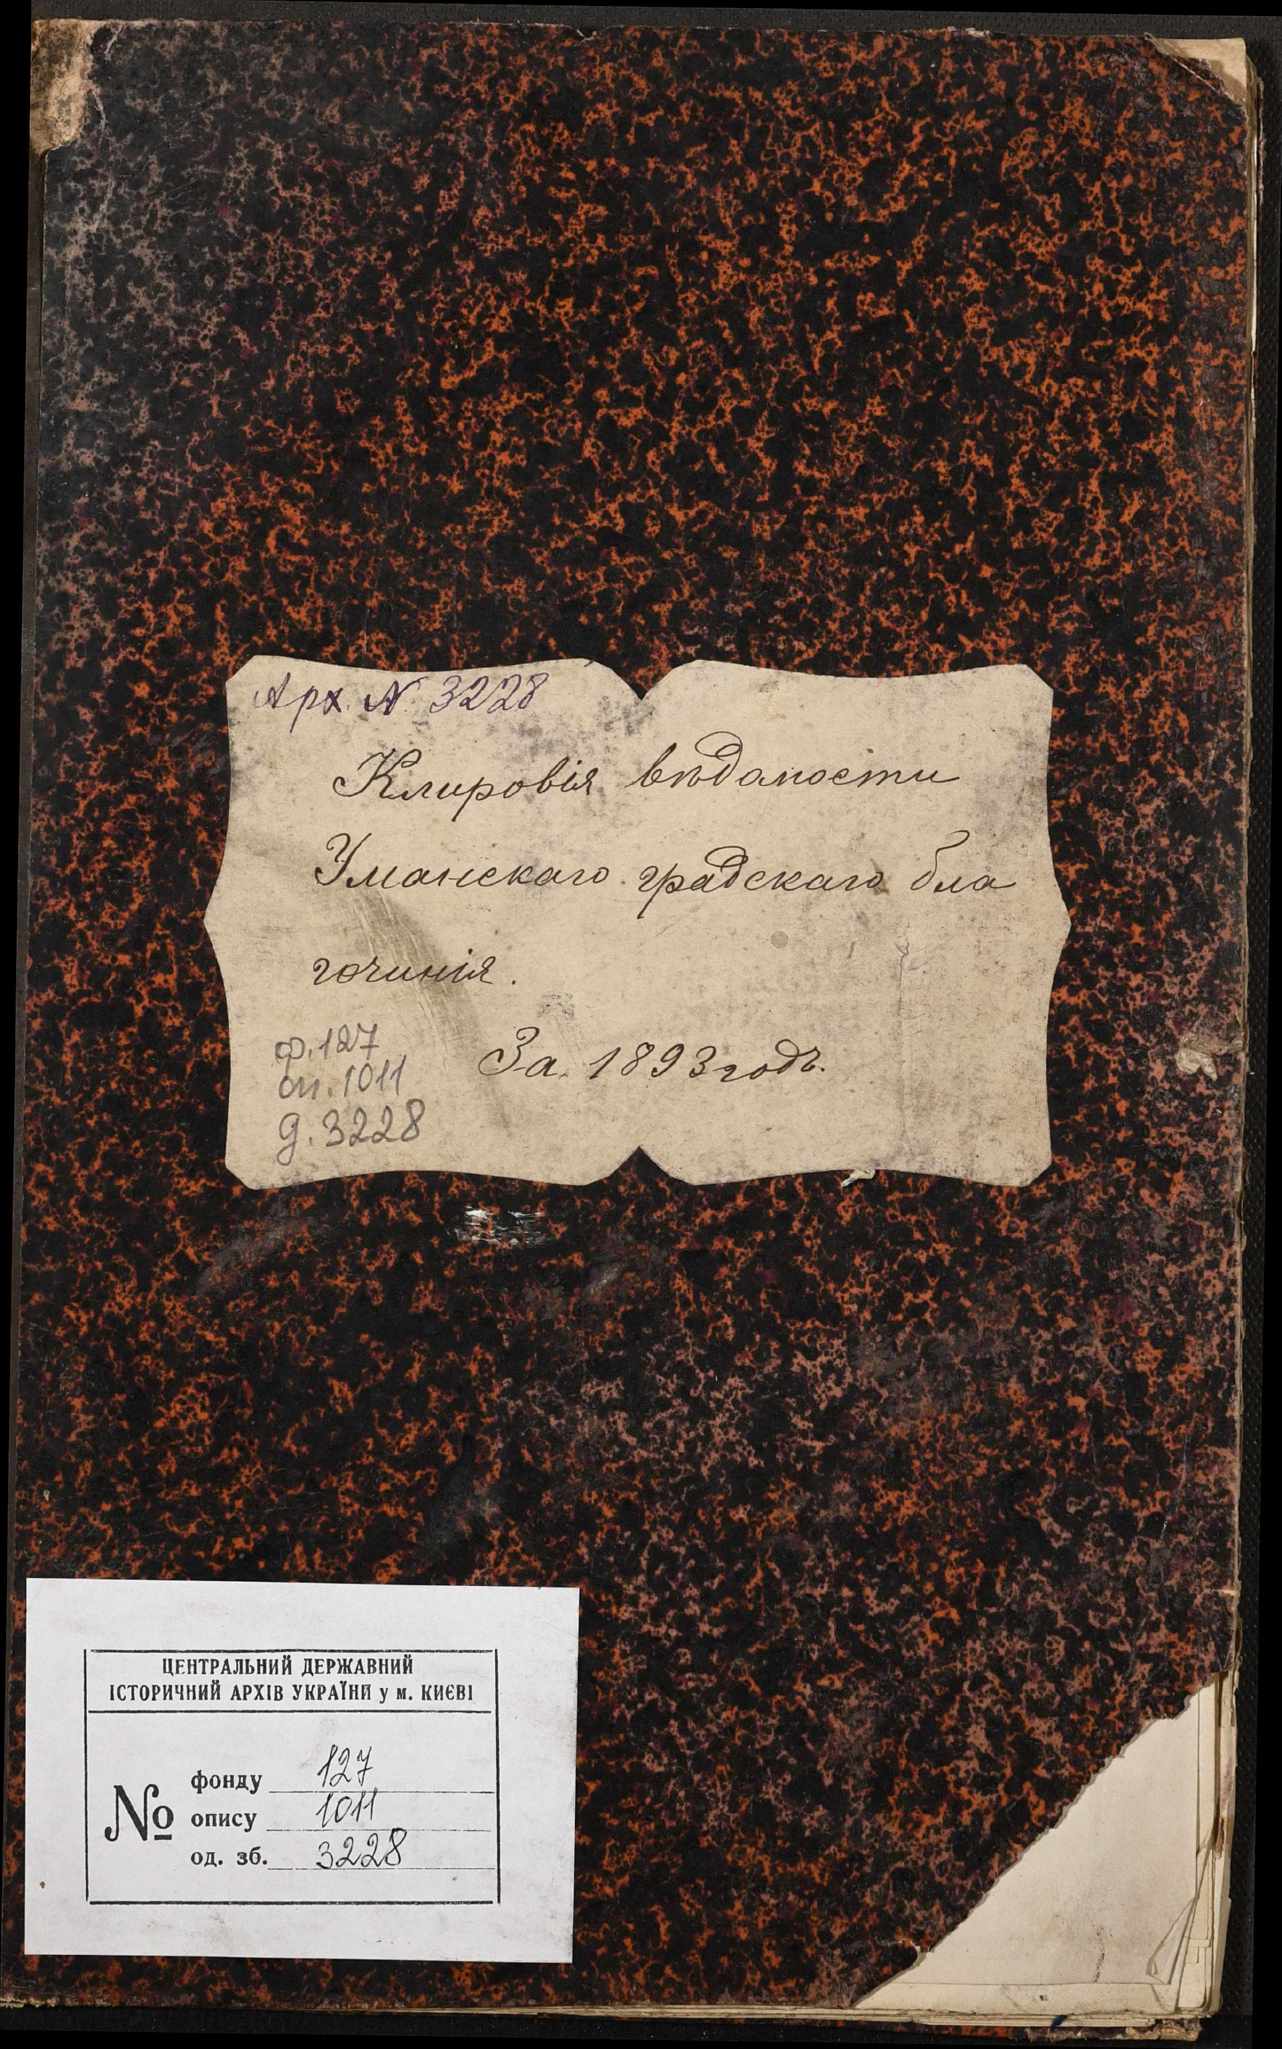 Арх. № 3228
Клировія вѣдомости
Уманскаго градскаго бла
гочинія.
За 1893 годъ.
ф. 127
оп. 1011
д. 3228
ЦЕНТРАЛЬНИЙ ДЕРЖАВНИЙ
ІСТОРИЧНИЙ АРХІВ УКРАЇНИ у м. КИЄВІ
№
фонду 127
опису 1011
од. зб. 3228